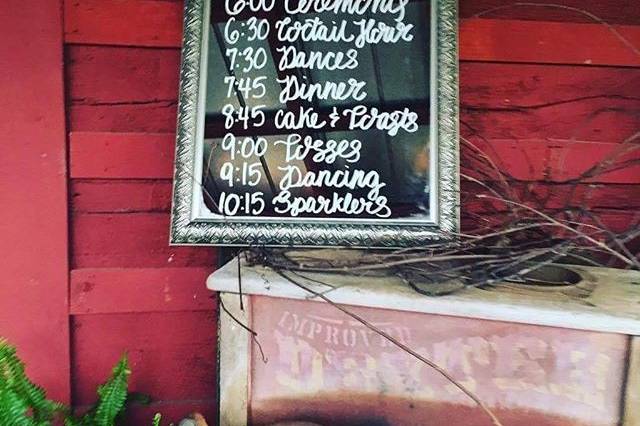 6:00 Ceremony
6:30 Coctail Hour
7:30 Dances
7:45 Dinner
8:45 Cake & Toasts
9:00 Tosses
9:15 Dancing
10:15 Sparklers
IMPROVED